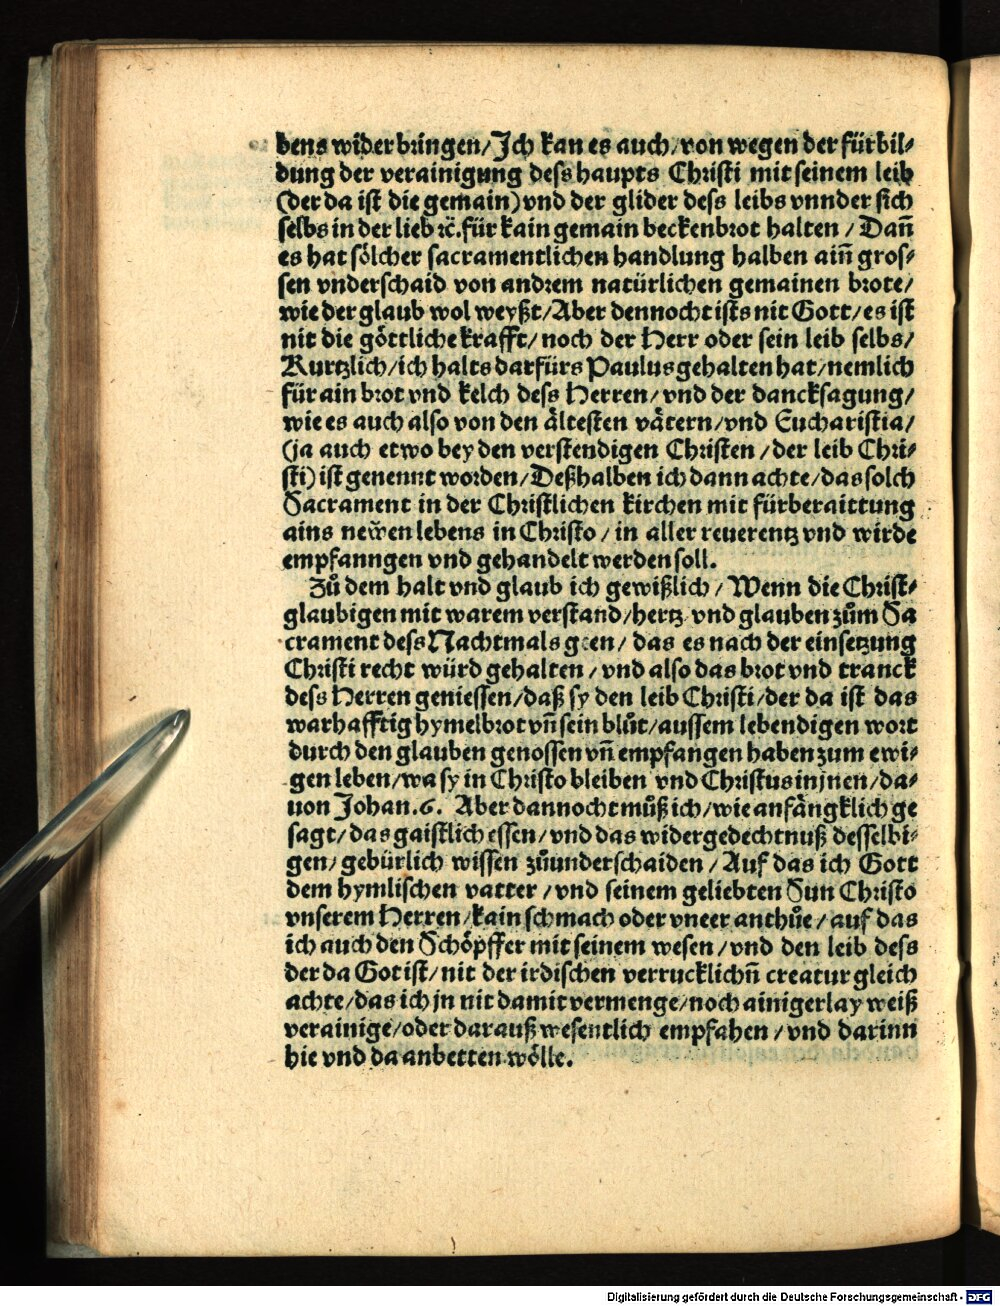 bens widerbringen/ Jch kan es auch/ von wegen der fürbil⸗
dung der verainigung dess haupts Christi mit seinem leib
(der da ist die gemain) vnd der glider dess leibs vnnder sich
selbs in der lieb ꝛc. für kain gemain beckenbrot halten / Dañ
es hat sölcher sacramentlichen handlung halben aiñ gros⸗
sen vnderschaid von andrem natürlichen gemainen brote/
wie der glaub wol weyßt/ Aber dennocht ists nit Gott/ es ist
nit die göttliche krafft/ noch der Herr oder sein leib selbs/
Kurtzlich/ ich halts darfürs Paulus gehalten hat/ nemlich
für ain brot vnd kelch dess Herren/ vnd der dancksagung/
wie es auch also von den ältesten vätern/ vnd Eucharistia/
(ja auch etwo bey den verstendigen Christen / der leib Chri⸗
sti) ist genennt worden/ Deßhalben ich dann achte/ das solch
Sacrament in der Christlichen kirchen mit fürberaittung
ains neẅen lebens in Christo / in aller reuerentz vnd wirde
empfanngen vnd gehandelt werden soll.
Zů dem halt vnd glaub ich gewißlich / Wenn die Christ⸗
glaubigen mit warem verstand/ hertz vnd glauben zům Sa
crament dess Nachtmals geen/ das es nach der einsetzung
Christi recht würd gehalten / vnd also das brot vnd tranck
dess Herren geniessen/ daß sy den leib Christi/ der da ist das
warhafftig hymelbrot vñ sein blůt/ aussem lebendigen wort
durch den glauben genossen vñ empfangen haben zum ewi⸗
gen leben/ wa sy in Christo bleiben vnd Christus in jnen/ da⸗
uon Johan. 6. Aber dannocht můß ich/ wie anfängklich ge
sagt/ das gaistlich essen/ vnd das widergedechtnuß desselbi⸗
gen/ gebürlich wissen zůunderschaiden / Auf das ich Gott
dem hymlischen vatter / vnd seinem geliebten Sun Christo
vnserem Herren/ kain schmach oder vneer anthůe / auf das
ich auch den Schöpffer mit seinem wesen/ vnd den leib dess
der da Got ist/ nit der irdischen verrucklichñ creatur gleich
achte/ das ich jn nit damit vermenge/ noch ainigerlay weiß
verainige/ oder darauß wesentlich empfahen / vnd darinn
hie vnd da anbetten wölle.
Digitalisierung gefördert durch die Deutsche Forschungsgemeinschaft - DFG